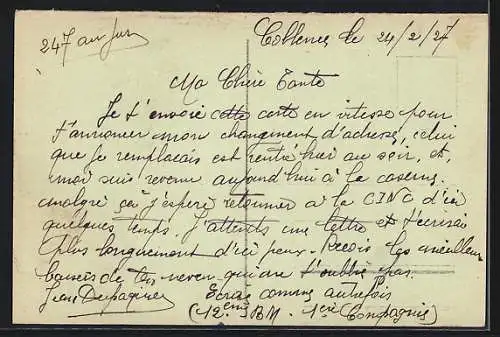 247 au jus
Coblence le 24/2/27
Ma Chère Tante
Je t'envoie cette carte en vitesse pour
t'annoncer mon changement d'adresse, celui
que je remplaçais est rentré hier au soir, et,
moi suis revenu aujourd'hui à la caserne
malgré ça j'espère retourner à la d'ici
quelques temps. J'attends une lettre et t'écrirai
plus longuement d'ici peu. Reçois les meilleurs
baisers de ton neveu qui ne t'oublie pas.
Jean
Ecris comme autrefois
(12ème BM. 1ère Compagnie)